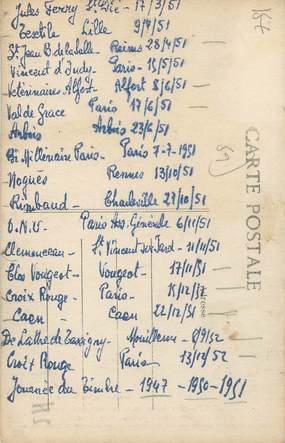 Jules Ferry St Dié - 17/3/51
Textile Lille 9/4/51
St Jean B. de la Salle - Reims 28/4/51
Vincent d'Indy - Paris - 15/5/51
Vétérinaires Alfort - Alfort 8/6/51
Val de Grace Paris 17/6/51
Arbois Arbois 23/6/51
Bi-Millénaire Paris - Paris 7-7-1951
Noguès Rennes 13/10/51
Rimbaud - Charleville 27/10/51
O.N.U - Paris Ass. Générale 6/11/51
Clemenceau - St Vincent sur Jard - 11/11/51
Clos Vougeot - Vougeot - 17/11/51
Croix Rouge - Paris - 15/12/51
Caen - Caen 22/12/51
De Lattre de Tassigny - Mouilleron - 8/9/52
Croix Rouge Paris 13/12/52
Journée du Timbre - 1947 - 1950 - 1951
CARTE POSTALE
Adresse